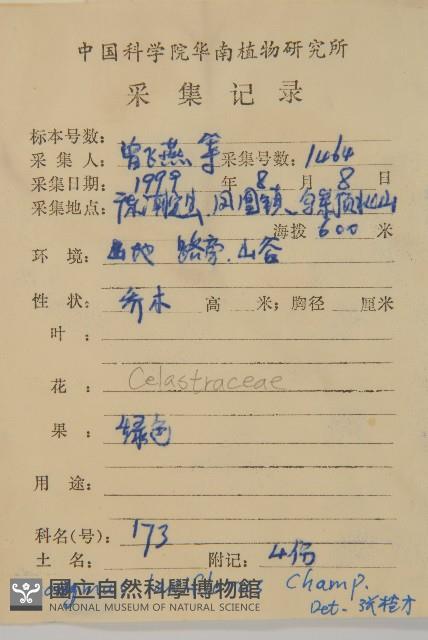 中国科学院华南植物研究所
采集记录
标本号数:
采集人: 曾飞燕等 采集号数: 1464
采集日期: 1999年8月8日
采集地点: 凤凰镇、山
海拨 600 米
环境: 山地 路旁.山谷
性状: 乔木 高 米; 胸径 厘米
叶:
花: Celastraceae
果: 绿色
用途:
科名(号): 173
土名: 附记: 4份
Champ.
國立自然科學博物館
NATIONAL MUSEUM OF NATURAL SCIENCE
Det.